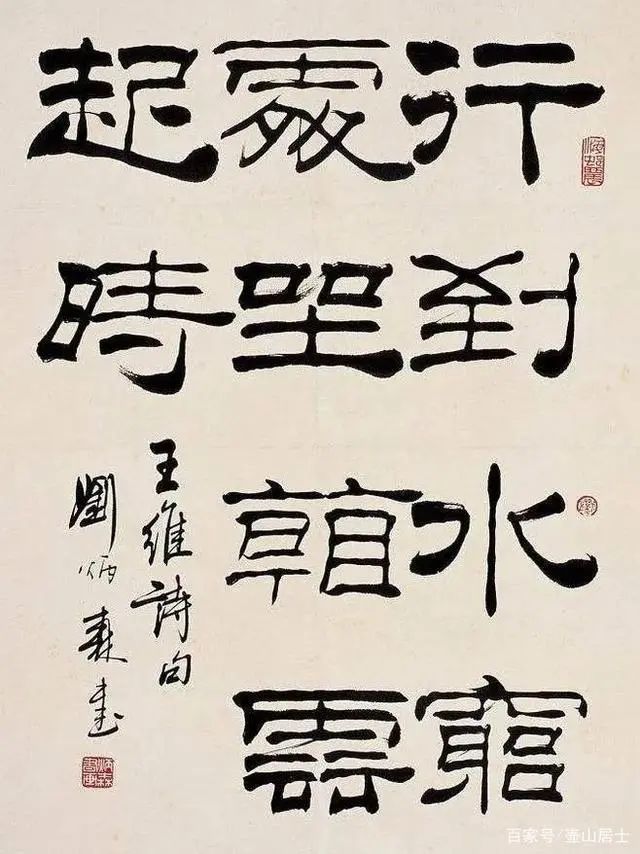 行到水窮
處坐看雲
起時
王維詩句
劉炳森書
百家号/壶山居士